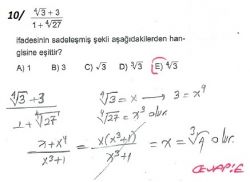 10/ ∜3 + 3 / 1 + ∜27
ifadesinin sadeleşmiş şekli aşağıdakilerden han-
gisine eşittir?
A) 1 B) 3 C) √3 D) ∛3 E) ∜3
∜3 + 3 / 1 + ∜27
∜3 = x → 3 = x⁴
∜27 = x³ olur.
x + x⁴ / x³ + 1 = x(x³+1) / x³+1 = x = ∛9 olur.
CEVAP: E